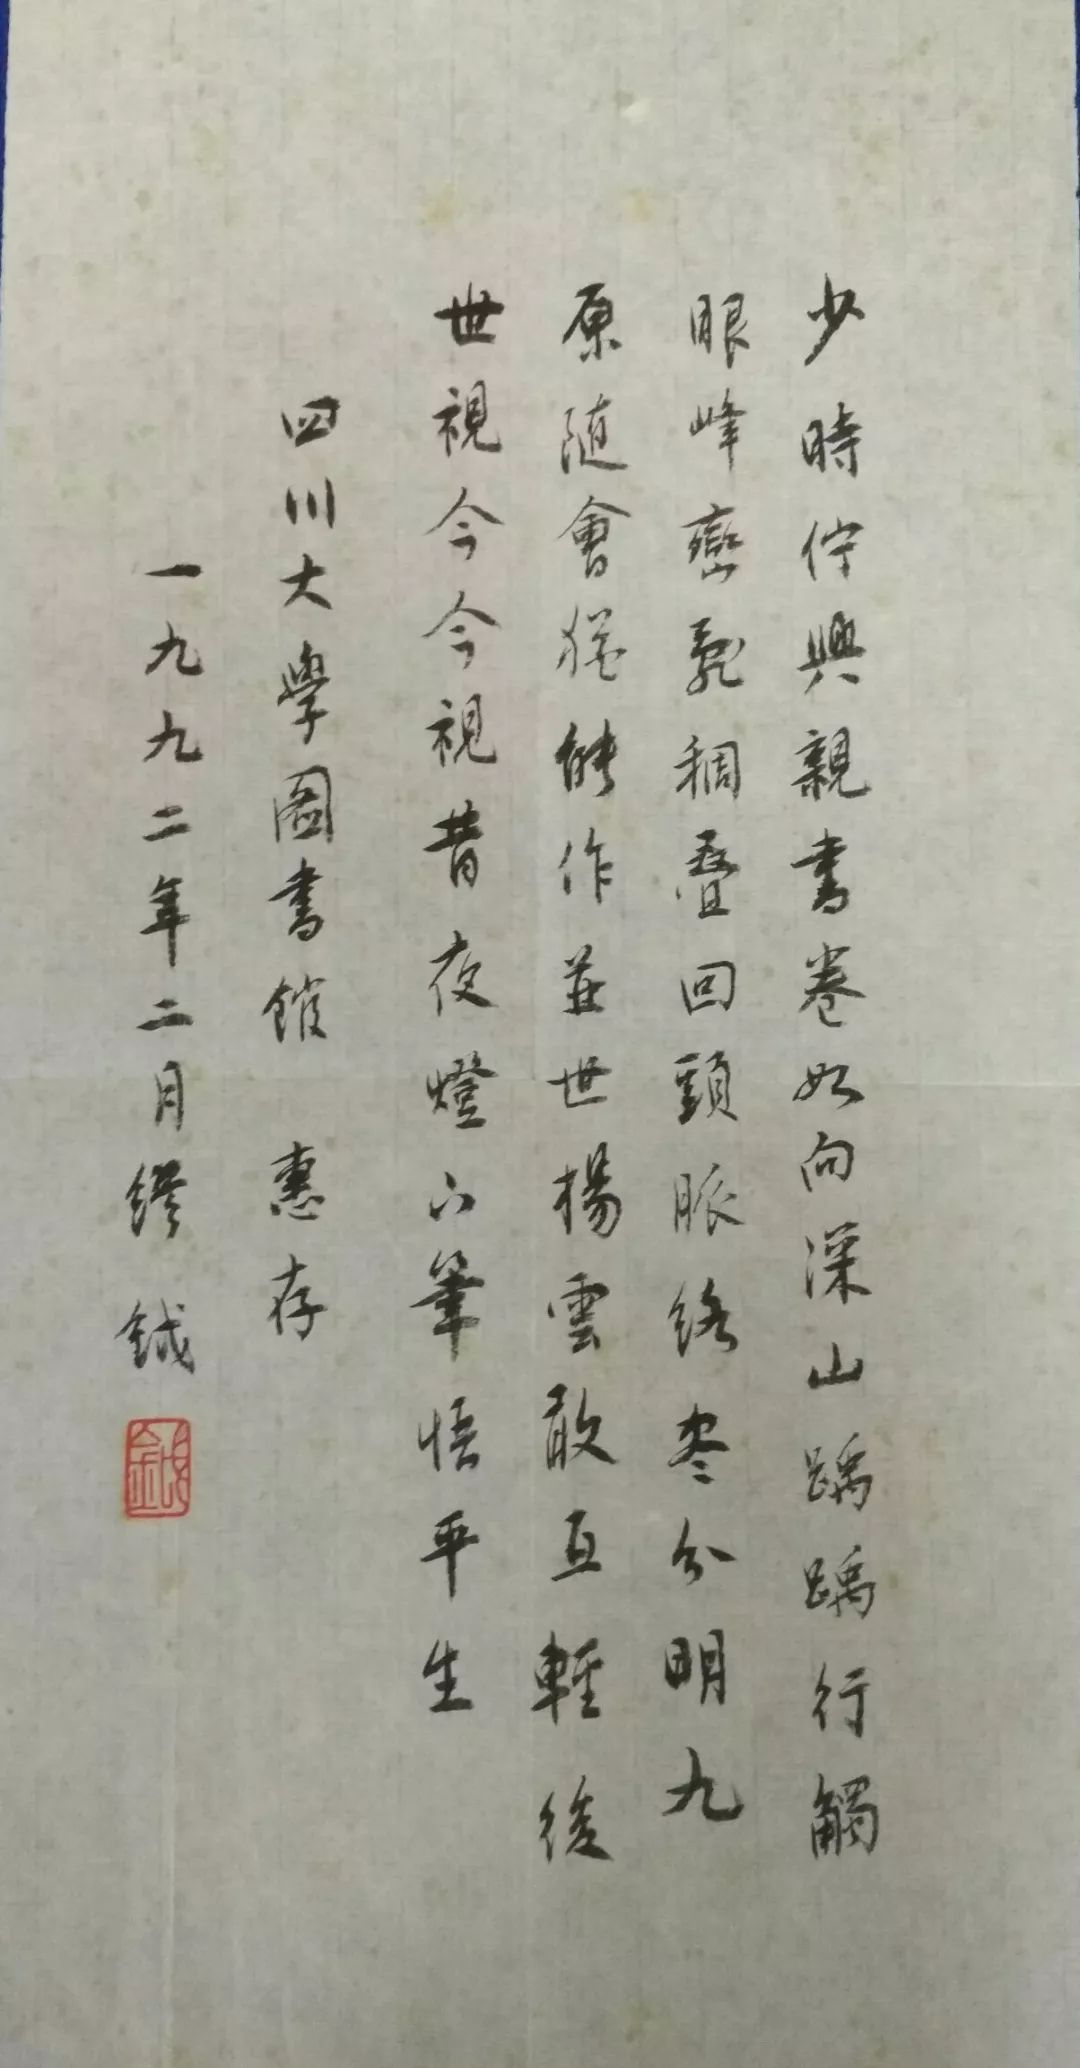 少時佇興親書卷如向深山踽踽行觸
眼峰巒亂稠疊回頭脈絡盡分明九
原隨會猶能作並世楊雲敢互輕後
世視今今視昔夜燈下筆悟平生
四川大學圖書館 惠存
一九九二年二月繆鉞
鉞